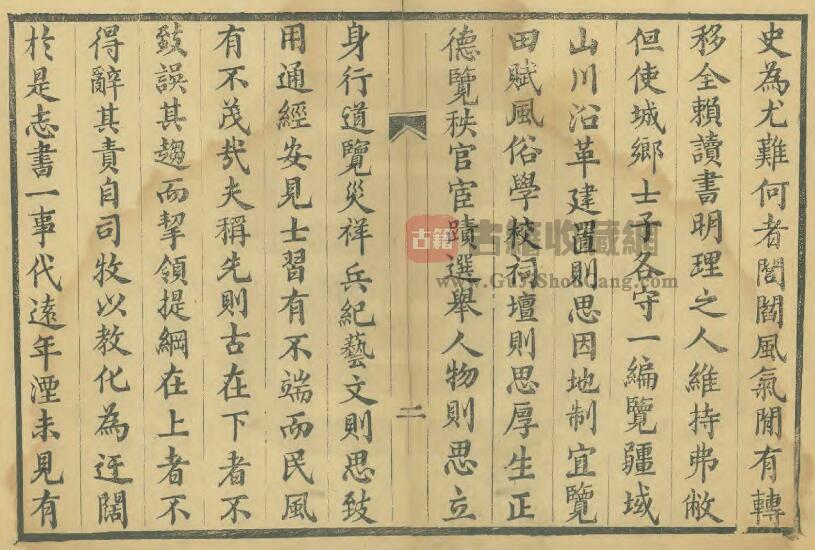 史為尤難何者閭閻風氣閒有轉
移全賴讀書明理之人維持弗敝
但使城鄉士子各守一編覽疆域
山川沿革建置則思因地制宜覽
田賦風俗學校祠壇則思厚生正
德覽秩官宦蹟選舉人物則思立
二
身行道覽災祥兵紀藝文則思致
用通經安見士習有不端而民風
有不茂㢤夫稱先則古在下者不
致誤其趨而挈領提綱在上者不
得辭其責自司牧以教化為迂闊
於是志書一事代遠年湮未見有
古籍 古籍收藏網
www.GujiShouCang.com